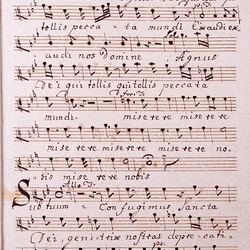 tollis pecca - ta mundi Exaudi ex
audi nos Domine Agnus
De'i qui tollis qui tollis peccata
mundi. misere re misere re
misere re misere re misere re no.
bis misere re nobis
All:o
Sub tuum Confugimus Sancta
De'i, geni = trix nostras depre - cati =